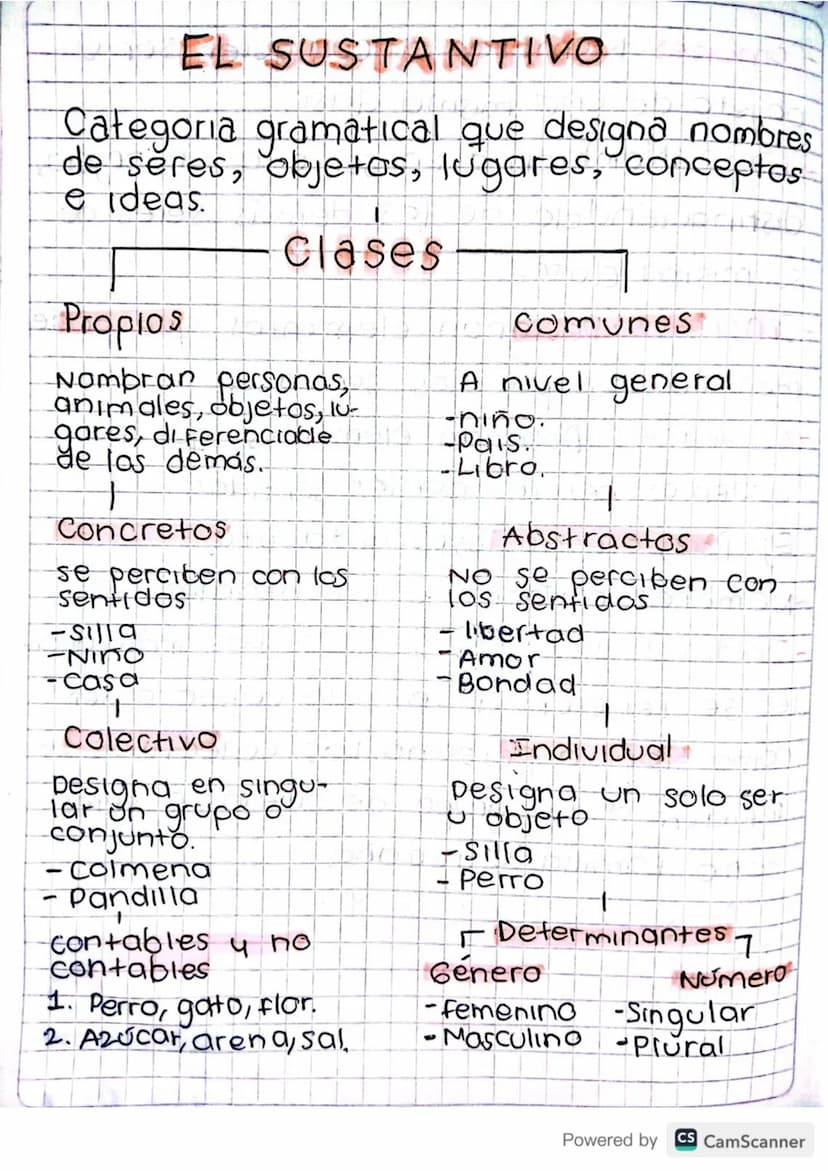 EL SUSTANTIVO
Categoria gramatical que designa nombres
de seres, objetos, lugares, conceptos
e ideas.
Clases
Propios
Nombran personas,
animales, objetos, lu-
gares, diferenciable
de los demás.
Concretos
se perciben con los
sentidos
-Silla
-Niño
-Casa
Colectivo
Designa en singu-
lar un grupo o
conjunto.
-Colmena
-Pandilla
contables y no
contables
1. Perro, gato, flor.
2. Azúcar, arena, sal.
Comunes
A nivel general
-niño.
-Pais.
-Libro.
Abstractos
No se perciben con
los sentidos
-libertad
-Amor
-Bondad
Individual
Designa un solo ser
u objeto
-Silla
-Perro
Determinantes
Género
-femenino
-Masculino
Número
-Singular
-Plural
Powered by CS CamScanner